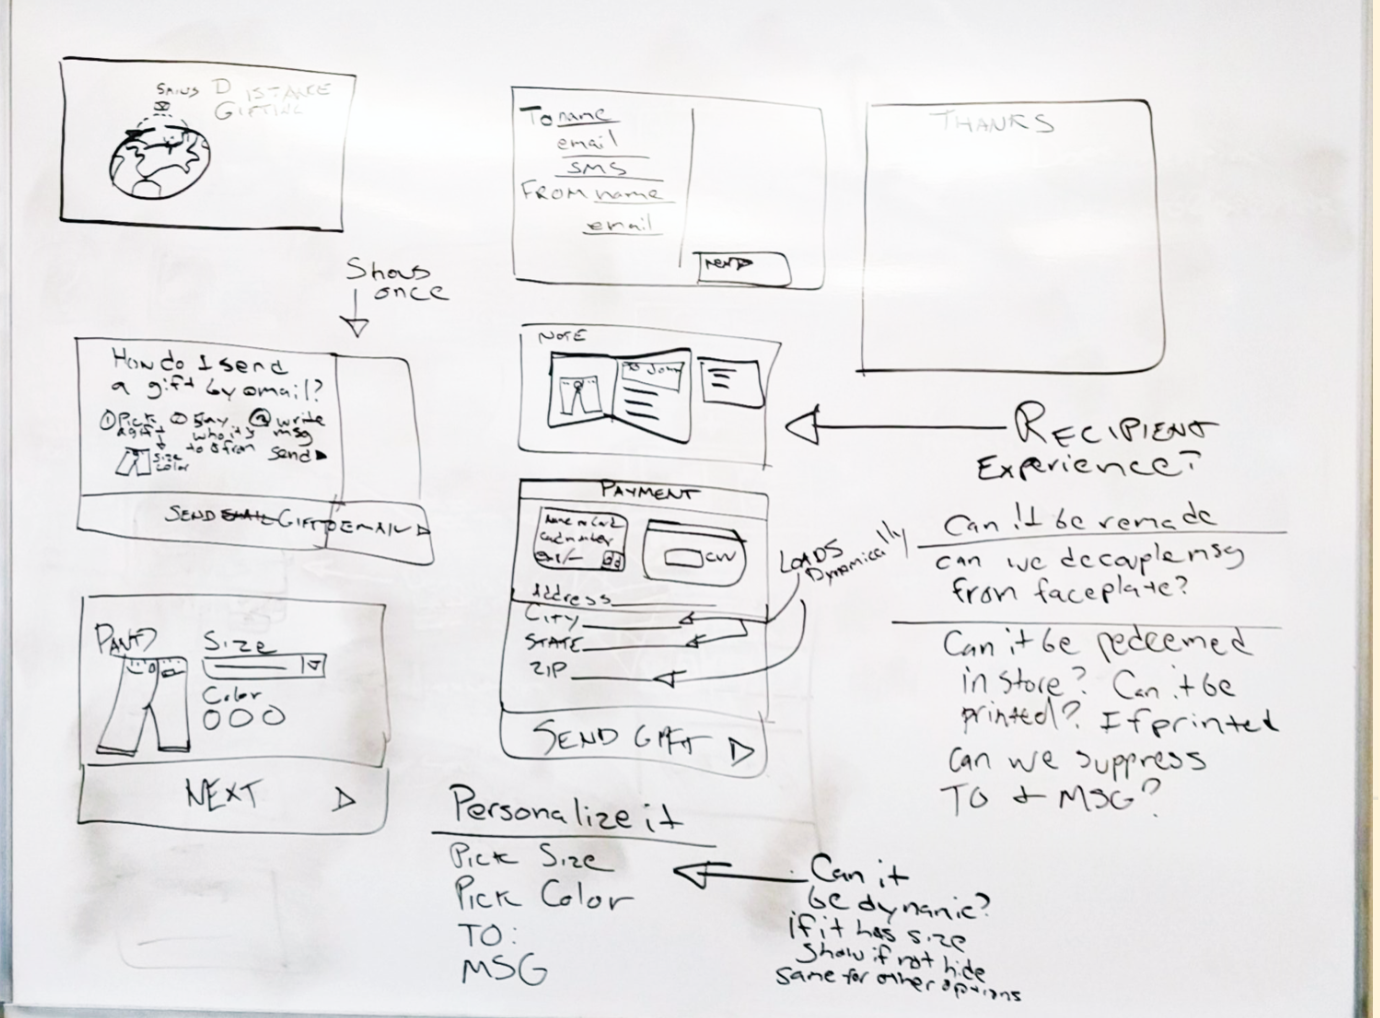 DISTANCE
GIFTING
Shows
once
How do I send
a gift by email?
① Pick
a gift
size
color
② Say
who it's
to & from
③ write
msg
send
SEND EMAIL GIFT EMAIL
PANT
Size
Color
NEXT
To name
email
SMS
FROM name
email
NEXT
NOTE
TO John
PAYMENT
Name on Card
Card number
CVV
Address
CITY
STATE
ZIP
LOADS
Dynamically
SEND GIFT
Personalize it
Pick Size
Pick Color
TO:
MSG
Can it
be dynamic?
if it has size
show if not hide
same for other options
THANKS
RECIPIENT
Experience?
Can it be remade
can we decouple msg
from faceplate?
Can it be redeemed
in store? Can it be
printed? If printed
can we suppress
TO & MSG?